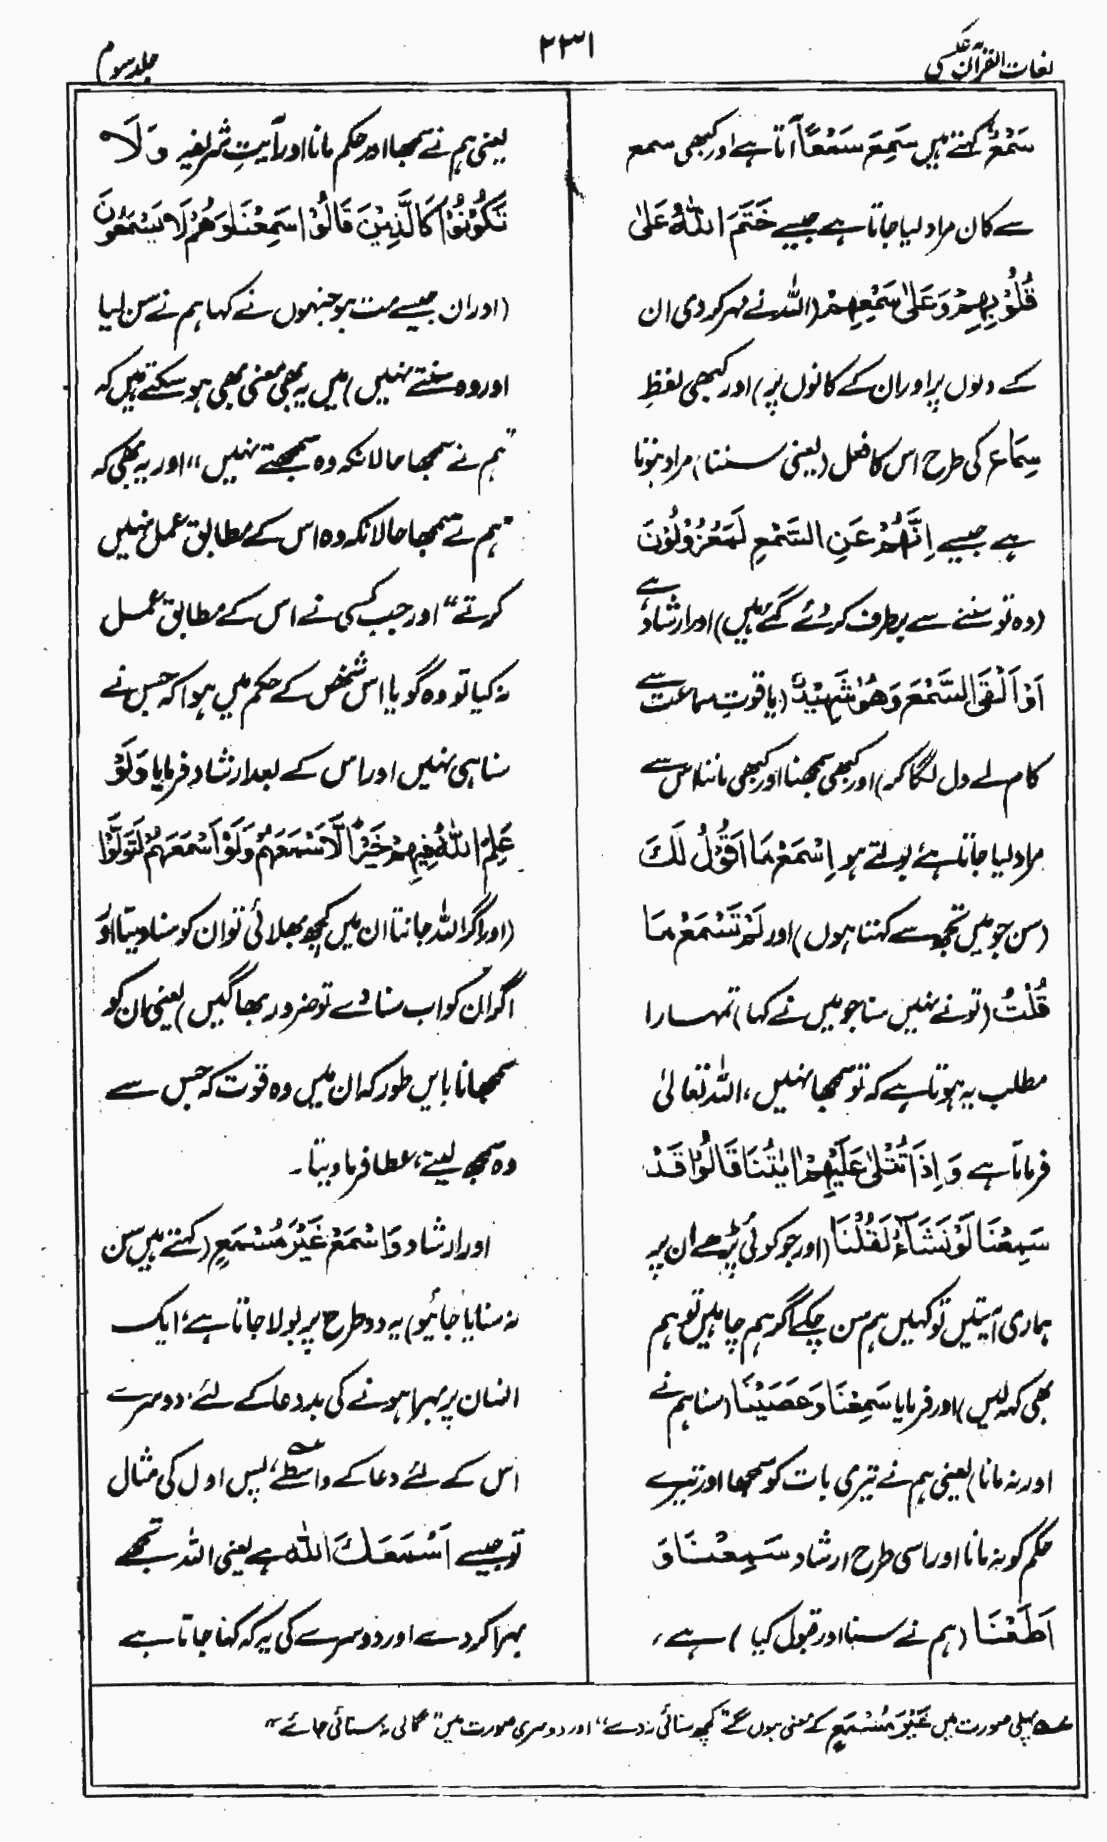 لغات القرآن عکسی
۲۳۱
جلد سوم
سَمْعٌ کہتے ہیں سَمِعَ سَمْعًا آتا ہے اور کبھی سمع
سے کان مراد لیا جاتا ہے جیسے خَتَمَ اللهُ عَلٰی
قُلُوْبِهِمْ وَعَلٰی سَمْعِهِمْ (اللہ نے مہر کر دی ان
کے دلوں پر اور ان کے کانوں پر) اور کبھی لفظِ
سِمَاع کی طرح اس کا فعل (یعنی سننا) مراد ہوتا
ہے جیسے اِنَّهُمْ عَنِ السَّمْعِ لَمَعْزُوْلُوْنَ
(وہ تو سننے سے برطرف کر دئے گئے ہیں) اور ارشاد ہے
اَوْ اَلْقَی السَّمْعَ وَهُوَ شَهِیْدٌ (یا قوتِ سماعت سے
کام لے دل لگا کر) اور کبھی سمجھنا اور کبھی ماننا اس سے
مراد لیا جاتا ہے بولتے ہو اِسْمَعْ مَا اَقُوْلُ لَكَ
(سن جو میں تجھ سے کہتا ہوں) اور لَمْ تَسْمَعْ مَا
قُلْتُ (تو نے نہیں سنا جو میں نے کہا) تمہارا
مطلب یہ ہوتا ہے کہ تو سمجھا نہیں، اللہ تعالیٰ
فرماتا ہے وَ اِذَا تُتْلٰی عَلَیْهِمْ اٰیٰتُنَا قَالُوْا قَدْ
سَمِعْنَا لَوْ نَشَآءُ لَقُلْنَا (اور جو کوئی پڑھے ان پر
ہماری آیتیں تو کہیں ہم سن چکے اگر ہم چاہیں تو ہم
بھی کہہ لیں) اور فرمایا سَمِعْنَا وَعَصَیْنَا (سنا ہم نے
اور نہ مانا) یعنی ہم نے تیری بات کو سمجھا اور تیرے
حکم کو نہ مانا اور اسی طرح ارشاد سَمِعْنَا وَ
اَطَعْنَا (ہم نے سنا اور قبول کیا) ہے،
یعنی ہم نے سمجھا اور حکم مانا اور آیتِ شریفہ وَلَا
تَكُوْنُوْا كَالَّذِیْنَ قَالُوْا سَمِعْنَا وَهُمْ لَا یَسْمَعُوْنَ
(اور ان جیسے مت ہو جنہوں نے کہا ہم نے سن لیا
اور وہ سنتے نہیں) میں یہ بھی معنی بھی ہو سکتے ہیں کہ
"ہم نے سمجھا حالانکہ وہ سمجھتے نہیں" اور یہ بھی کہ
"ہم نے سمجھا حالانکہ وہ اس کے مطابق عمل نہیں
کرتے" اور جب کسی نے اس کے مطابق عمل
نہ کیا تو وہ گویا اس شخص کے حکم میں ہوا کہ جس نے
سنا ہی نہیں اور اس کے بعد ارشاد فرمایا وَلَوْ
عَلِمَ اللهُ فِیْهِمْ خَیْرًا لَّاَسْمَعَهُمْ وَلَوْ اَسْمَعَهُمْ لَتَوَلَّوْا
(اور اگر اللہ جانتا ان میں کچھ بھلائی تو ان کو سنا دیتا اور
اگر ان کو اب سنا دے تو ضرور بھاگیں) یعنی ان کو
سمجھانا بایں طور کہ ان میں وہ قوت کہ جس سے
وہ سمجھ لیتے، عطا فرما دیتا۔
اور ارشاد وَاسْمَعْ غَیْرَ مُسْمَعٍ (کہتے ہیں سن
نہ سنایا جائیو) یہ دو طرح پر بولا جاتا ہے، ایک
انسان پر بہرا ہونے کی بددعا کے لئے، دوسرے
اس کے لئے دعا کے واسطے، پس اول کی مثال
تو جیسے اَسْمَعَكَ اللهُ ہے یعنی اللہ تجھے
بہرا کر دے اور دوسرے کی یہ کہ کہا جاتا ہے
پہلی صورت میں غَیْرَ مُسْمَعٍ کے معنی ہوں گے "کچھ سنائی نہ دے" اور دوسری صورت میں "گالی نہ سنائی جائے"